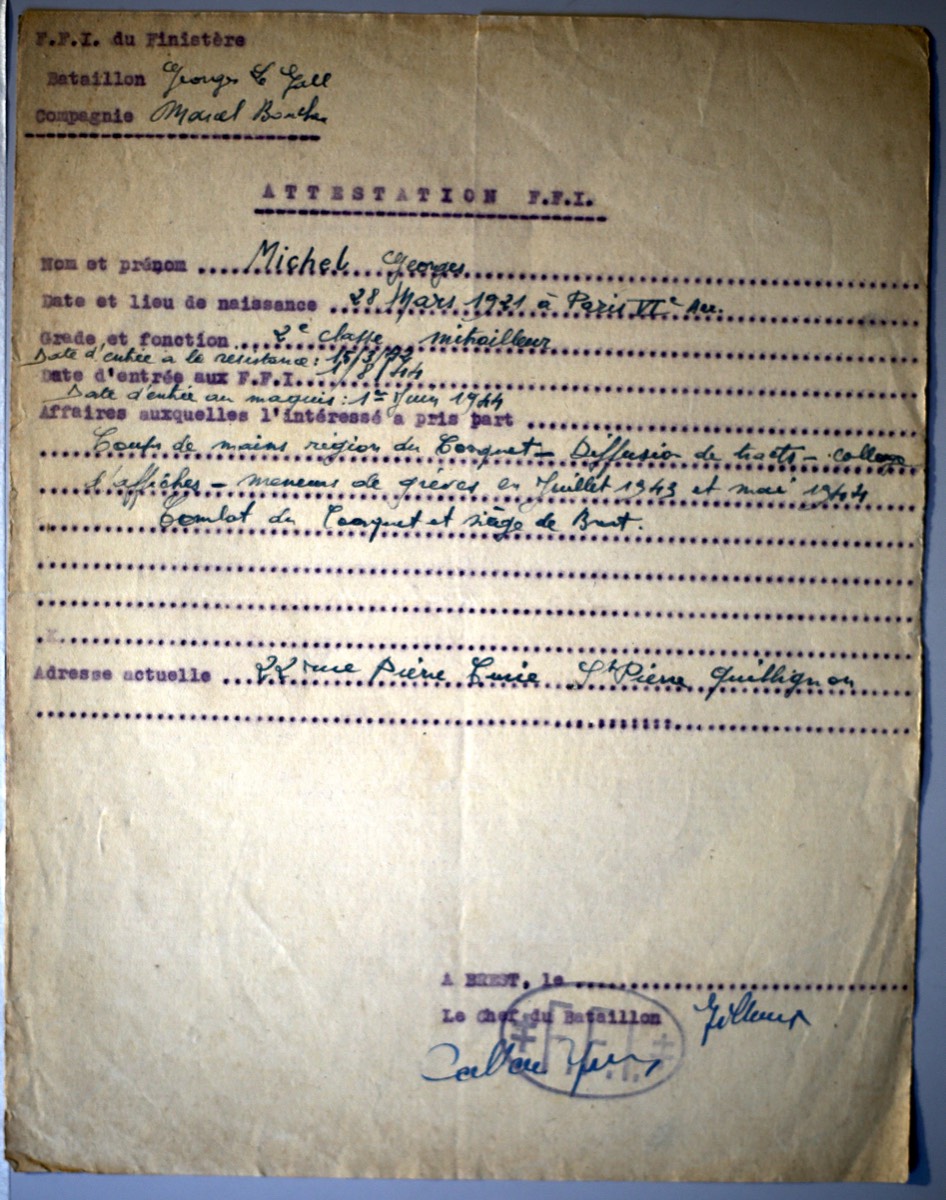 F.F.I. du Finistère
Bataillon Georges Le Gall
Compagnie Marcel
ATTESTATION F.F.I.
Nom et prénom .... Michel Georges
Date et lieu de naissance .. 28 Mars 1921 à Paris VIe Arr.
Grade et fonction .. 2e classe mitrailleur
Date d'entrée a la resistance : 15/3/
Date d'entrée aux F.F.I. 1/8/44
Date d'entrée au maquis : 1er Juin 1944
Affaires auxquelles l'intéressé a pris part
Coups de mains région du Conquet - Diffusion de tracts - collage
d'affiches - meneurs de grèves en Juillet 1943 et mai 1944
Combat du Conquet et siège de Brest.
.X.
Adresse actuelle ... 22 rue Pierre Curie St Pierre Quilbignon
A BREST, le
Le Chef du Bataillon
F.F.I.